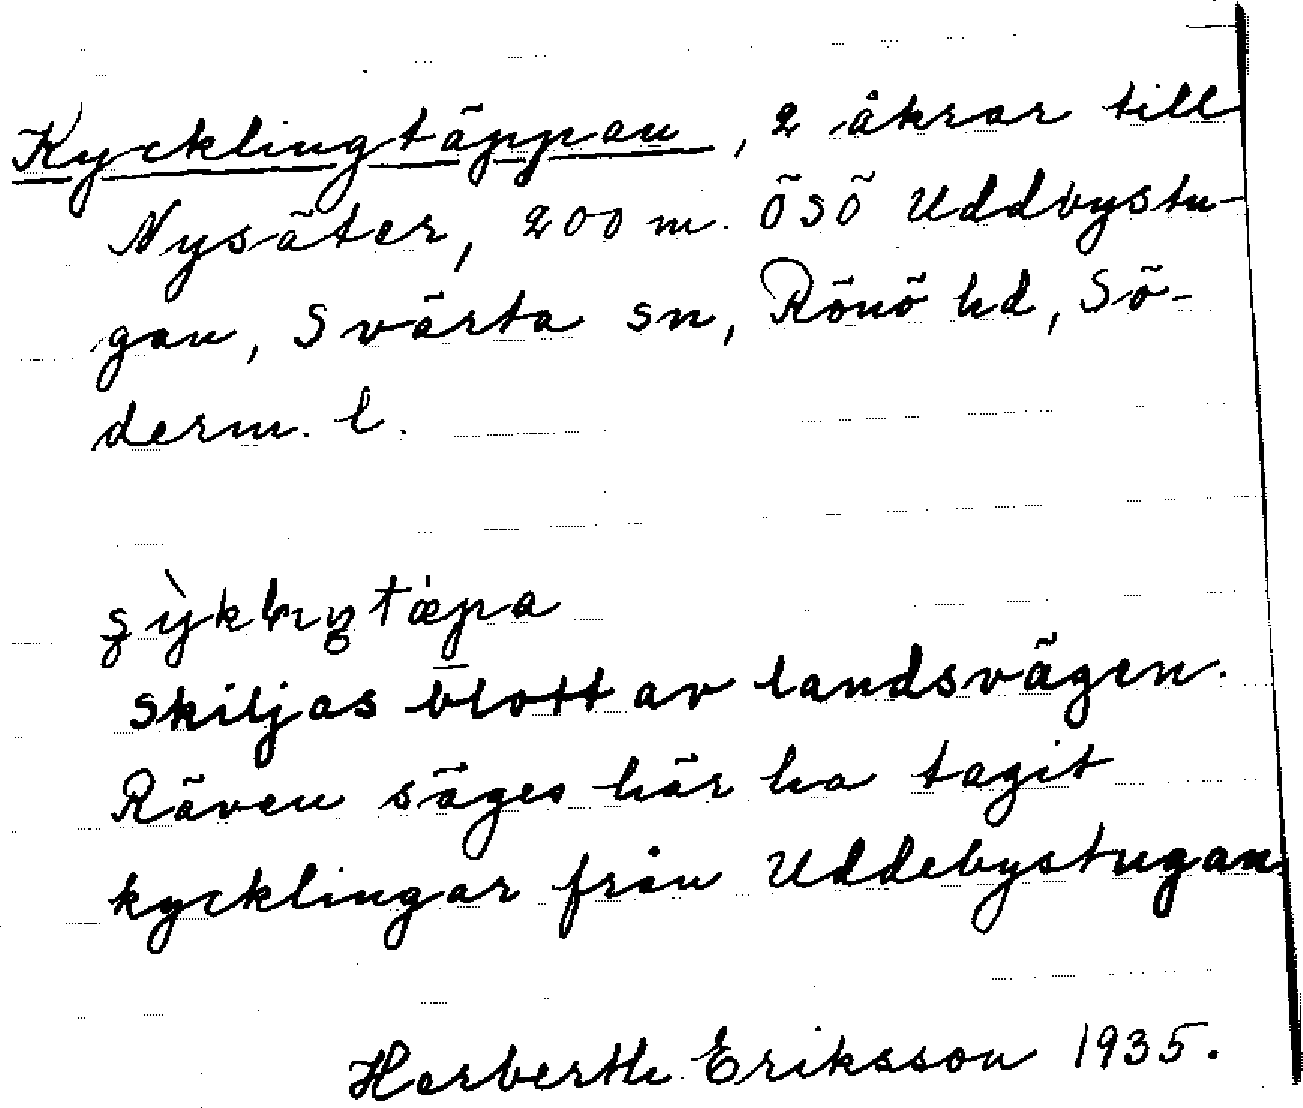 Kycklingtäppan, 2 åkrar till
Nysäter, 200 m. ÖSÖ Uddbystu-
gan, Svärta sn, Rönö hd, Sö-
derm. l.
skiljas blott av landsvägen.
Räven säges här ha tagit
kycklingar från Uddebystugan.
Herberth Eriksson 1935.